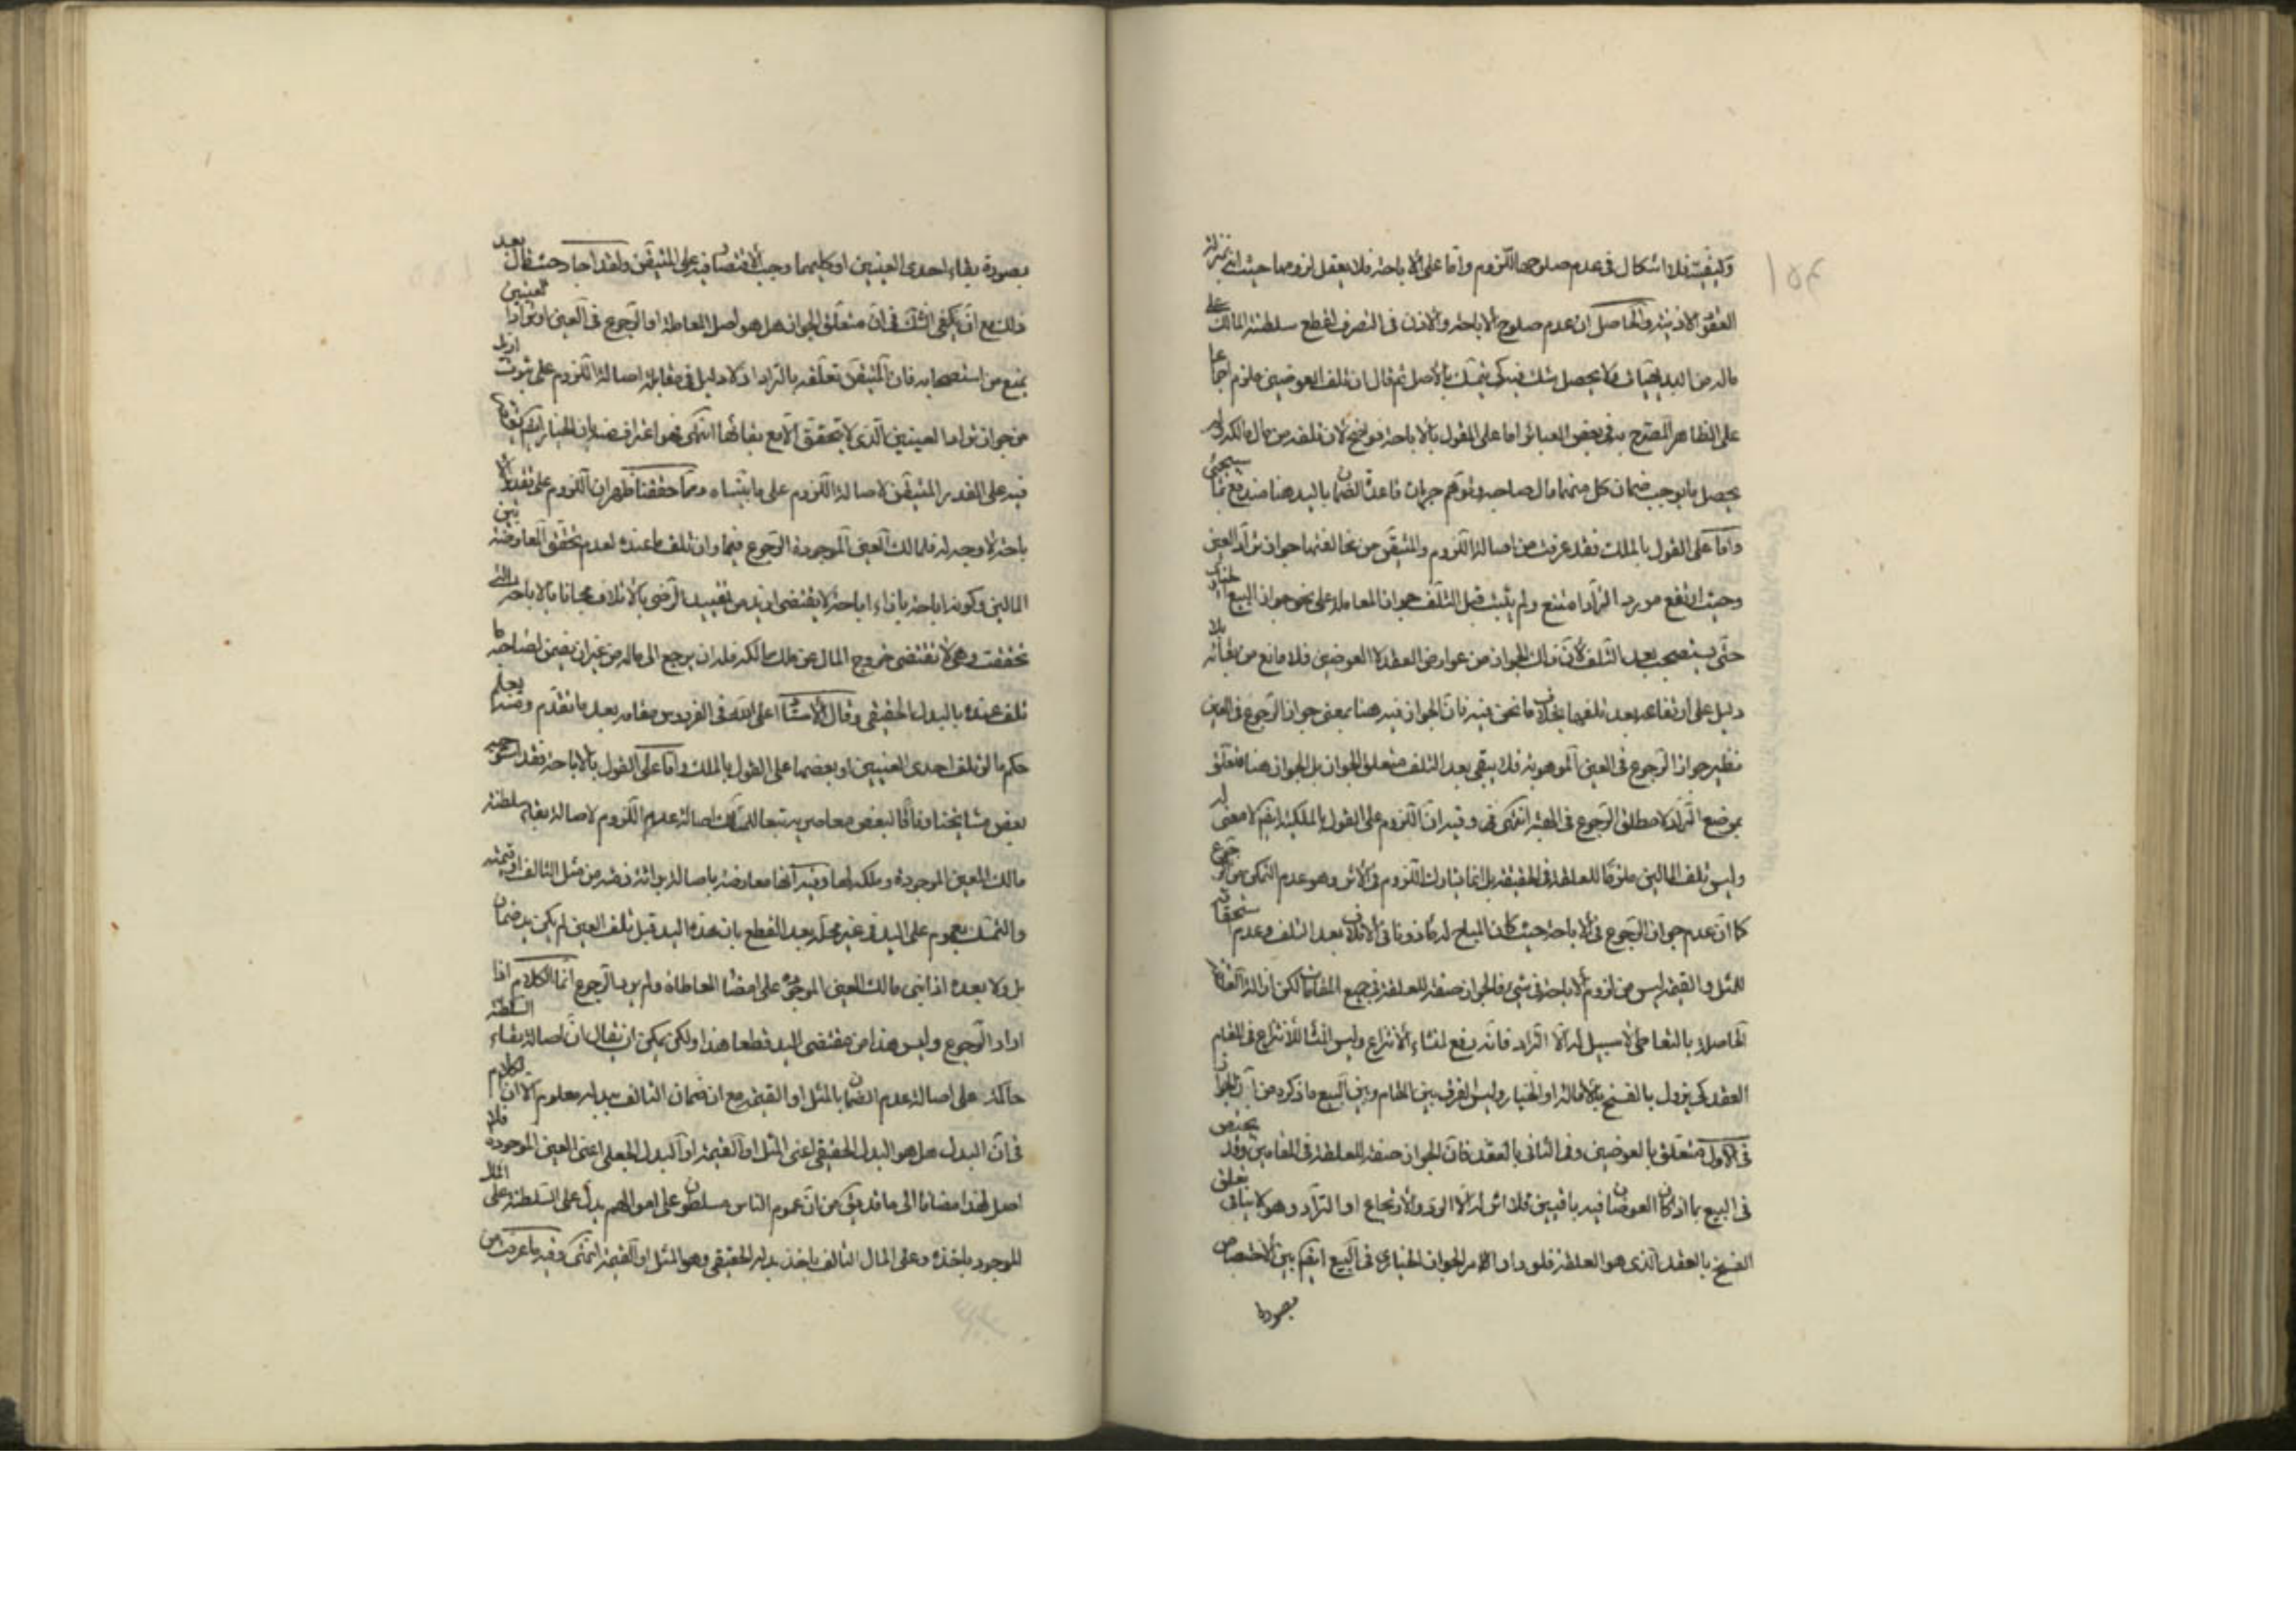 وكيفيته فلا اشكال في عدم صلوحها للّزوم وامّا على الاباحة فلا يعقل لزومها حيث انّه بمنزلة
العقود الاذنيّة والحاصل ان عدم صلوح الاباحة والاذن في التصرف لقطع سلطنة المالك على
ماله من البديهيات فلا يحصل شك فيه كي يتمسّك بالاصل ثم قال ان تلف العوضين ملزم اجماعا
على الظاهر المصرّح به في بعض العبائر امّا على القول بالاباحة فواضح لان تلفه من مال مالكه ولم
يحصل ما يوجب ضمان كل منهما مال صاحبه وتوهّم جريان قاعدة الضمان باليد هنا مندفع بما سيجيئ
وامّا على القول بالملك فقد عرفت من اصالة اللّزوم والمتيقّن من مخالفتها جواز ترادّ العين
وحيث ارتفع مورد الترادّ امتنع ولم يثبت قبل التلف جواز المعاملة على نحو جواز البيع الخياري
حتّى يستصحب بعد التلف لانّ ذلك الجواز من عوارض العقد لا العوضين فلا مانع من بقائه بل لا
دليل على ارتفاعه بعد تلفهما بخلاف ما نحن فيه فانّ الجواز فيه هنا بمعنى جواز الرّجوع في العين
نظير جواز الرّجوع في العين الموهوبة فلا يبقى بعد التلف متعلق الجواز بل الجواز هنا متعلّق
بموضع الترادّ لا مطلق الرّجوع في الهبة انتهى وفيه انّ اللّزوم على القول بالملكيّة ايضا لا معنى له
وليس تلف المالين ملزما للمعاملة في الحقيقة بل انّما يشارك اللّزوم في الاثر وهو عدم التمكن من الرّجوع
كما انّ عدم جواز الرّجوع في الاباحة حيث كان المبيح له ماذونا في الاتلاف بعد التلف وعدم استحقاقه
للمثل والقيمة ليس من لزوم الاباحة في شيء فالجواز صفة للمعاملة في جميع المقامات لكن ازالة العلقة
الحاصلة بالتعاطي لا سبيل له الّا الترادّ فانّه رفع لمنشاء الانتزاع وليس المنشأ للانتزاع في المقام
العقد كي يزول بالفسخ بالاقالة او الخيار وليس الفرق بين المقام وبين البيع ما ذكره من انّ الجواز
في الاول متعلق بالعوضين وفي الثاني بالعقد فانّ الجواز صفة للمعاملة في المقامين وقد يختص
في البيع بما اذا كان العوضان فيه باقيين فلا اثر له الّا الردّ والارتجاع او الترادّ وهو لا ينافي تعلق
الفسخ بالعقد الذي هو المعاملة فلو دار الامر الجواز الخياري في البيع ايضا بين الاختصاص
بصورة
بصورة بقاء احدى العينين او كليهما وجب الاقتصار فيه على المتيقّن ولقد اجاد حيث قال بعد
ذلك مع انّه يكفي الشّك في انّ متعلّق الجواز هل هو اصل المعاملة او الرّجوع في العين او ترادّ العينين
يمنع من استصحابه فان المتيقّن تعلّقه بالترادّ اذ لا دليل في مقابلة اصالة اللّزوم على ثبوت ازيد
من جواز ترادّ العينين الّذي لا يتحقق الّا مع بقائهما انتهى فهو اعتراف منه بان الخيار ايضا يقتصر
فيه على القدر المتيقّن لاصالة اللّزوم على ما بيّناه وممّا حققنا ظهر ان اللّزوم على تقدير الا
باحة لا وجه له فلمالك العين الموجودة الرّجوع فيها وان تلف ما عنده لعدم تحقق المعاوضة بين
المالين وكونه اباحة بازاء اباحة لا يقتضي ازيد من تقييد الرّضى بالاتلاف مجانا بالاباحة الّتي
تحققت وهي لا تقتضي خروج المال عن ملك مالكه فله ان يرجع الى ماله من غير ان يضمن لصاحبه ما
تلف عنده بالبدل الحقيقي وقال الاستاد اعلى اللّه في الفردوس مقامه بعد ما تقدّم ومنه يعلم
حكم ما لو تلف احدى العينين او بعضها على القول بالملك وامّا على القول بالاباحة فقد استوجه
بعض مشايخنا وفاقا لبعض معاصريه تبعا للمسالك اصالة عدم اللّزوم لاصالة بقاء سلطنة
مالك العين الموجودة وملكه لها وفيه انّها معارضة باصالة برائة ذمّته من مثل التالف او قيمته
والتمسّك بعموم على اليد في غير محلّه بعد القطع بان هذه اليد قبل تلف العين لم يكن يد ضمان
بل ولا بعده اذا بنى مالك العين الموجودة على امضاء المعاطاة ولم يرد الرّجوع انّما الكلام اذا
اراد الرّجوع وليس هذا من مقتضى اليد قطعا هذا ولكن يمكن ان يقال انّ اصالة بقاء السلطنة
حاكمة على اصالة عدم الضمان بالمثل او القيمة مع ان ضمان التالف ببدله معلوم الّا ان الكلام
في انّ البدل هل هو البدل الحقيقي اعني المثل او القيمة او البدل الجعلي اعني العين الموجودة فلا
اصل هذا مضافا الى ما قد يق من انّ عموم الناس مسلطون على اموالهم يدل على السّلطنة على المال
الموجود باخذه وعلى المال التالف باخذ بدله الحقيقي وهو المثل او القيمة انتهى وفيه ما عرفت من